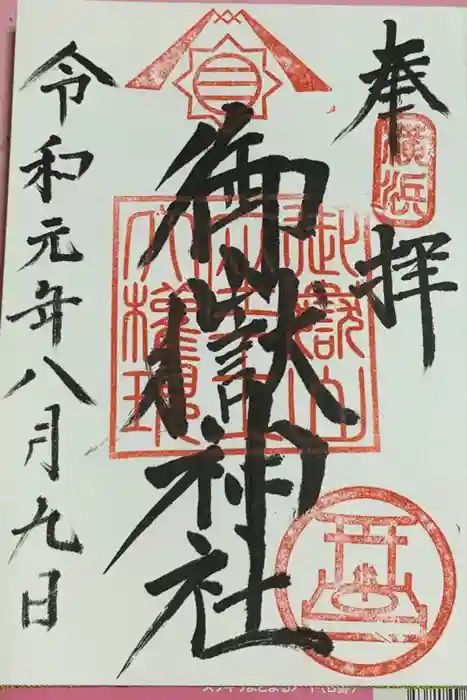 奉拝
横浜
御嶽神社
御嶽山
大權現
令和元年八月九日